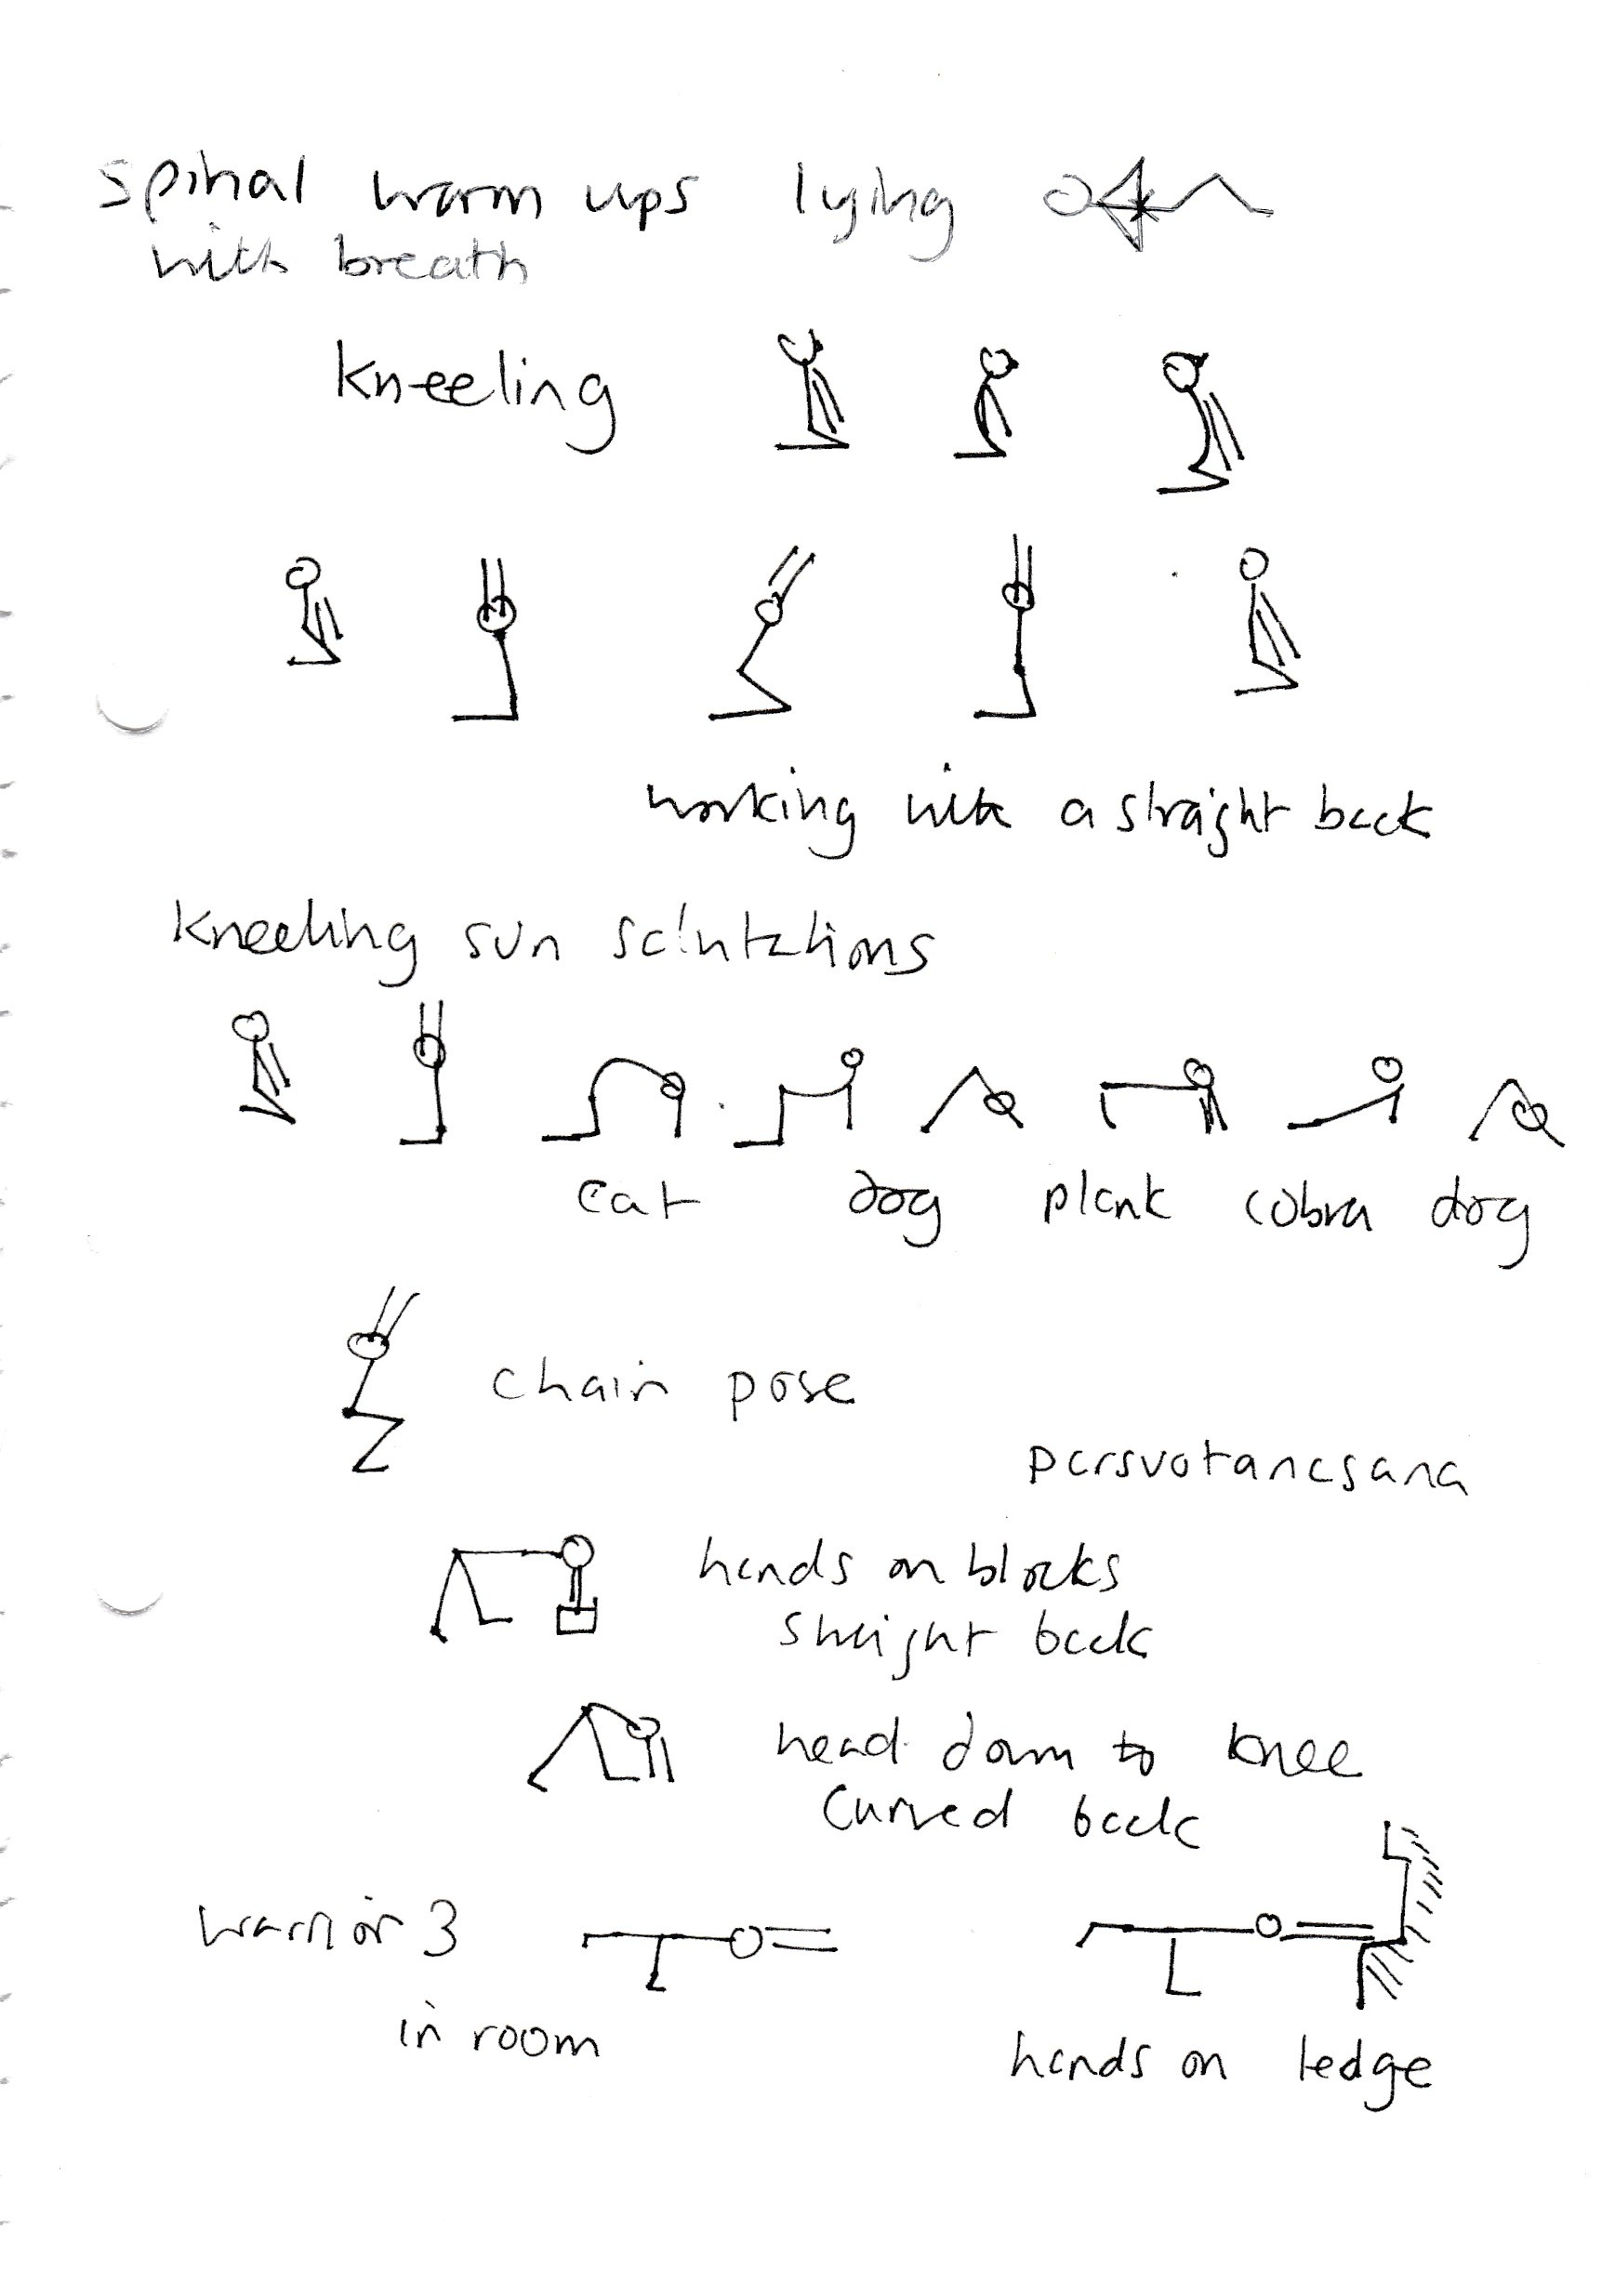 spinal warm ups lying
with breath
kneeling
working with a straight back
kneeling sun salutations
cat dog plank cobra dog
chair pose
parsvotanasana
hands on blocks
straight back
head down to knee
curved back
warrior 3
in room
hands on ledge